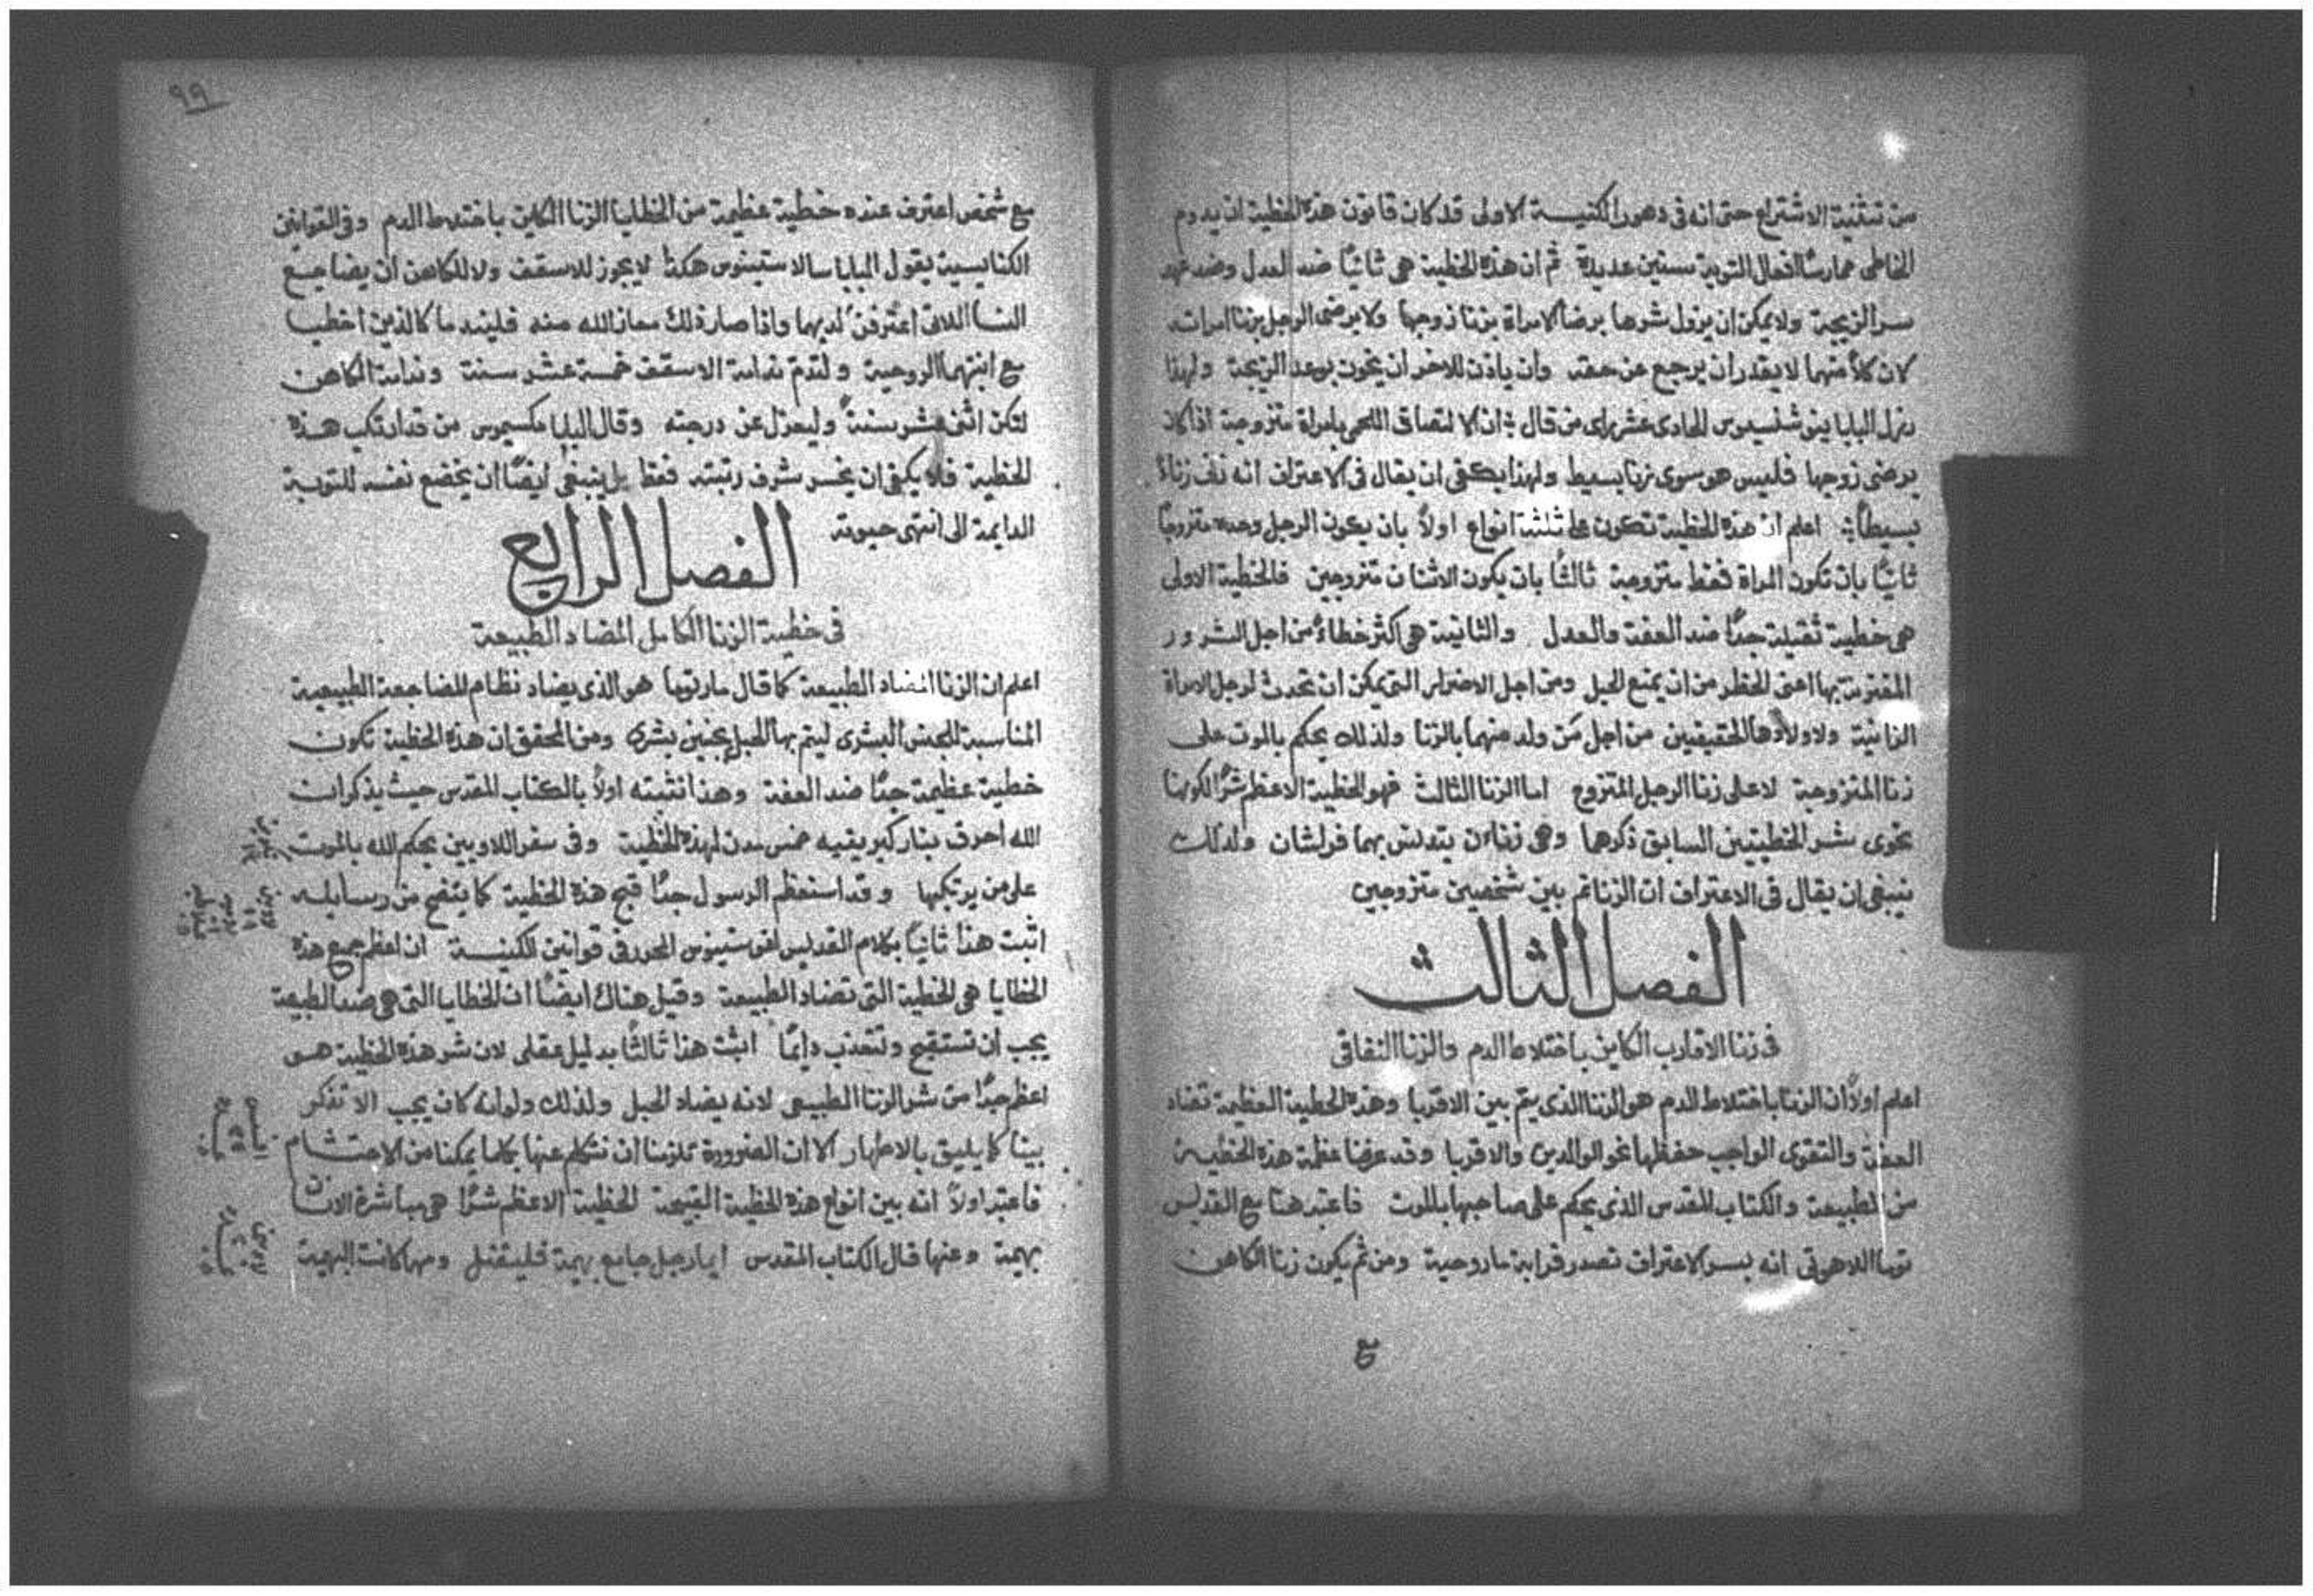 من تثنية الاشتراع حتى انه في دهور الكنيسة الاولى قد كان قانون هذه الخطية ان يدوم
الخاطى ممارسًا افعال التوبة سنين عديدة ثم ان هذه الخطية هي ثانيًا ضد العدل وضد عهد
سر الزيجة ولا يمكن ان يزول شرها برضا الامراة بزنا زوجها ولا برضى الرجل بزنا امراته
لان كلاً منهما لا يقدر ان يرجع عن حقه وان ياذن للاخر ان يخون بوعد الزيجة ولهذا
رذل البابا اينوشنسيوس الحادى عشر راى من قال ان الالتصاق اللحمى بامراة متزوجة اذا كان
برضى زوجها فليس هو سوى زنا بسيط ولهذا يكفى ان يقال في الاعتراف انه زنا
بسيطًا اعلم ان هذه الخطية تكون على ثلثة انواع اولاً بان يكون الرجل وحده متزوجًا
ثانيًا بان تكون المراة فقط متزوجة ثالثًا بان يكون الاثنان متزوجين فالخطية الاولى
هي خطية ثقيلة جدًا ضد العفة والعدل والثانية هي اكثر خطاءً من اجل الشرور
المقترنة بها اعنى الخطر من ان يمنع الحبل ومن اجل الاضرار التى يمكن ان تحدث لرجل الامراة
الزانية ولاولادها الحقيقيين من اجل مَن ولد منهما بالزنا ولذلك يحكم بالموت على
زنا المتزوجة لا على زنا الرجل المتزوج اما الزنا الثالث فهو الخطية الاعظم شرًا لكونها
تحوى شر الخطيتين السابق ذكرها وهي زناءن يتدنس بهما فراشان ولذلك
ينبغى ان يقال في الاعتراف ان الزنا تم بين شخصين متزوجين
الفصل الثالث
في زنا الاقارب الكاين باختلاط الدم والزنا النفاقى
اعلم اولاً ان الزنا باختلاط الدم هو الزنا الذى يتم بين الاقربا وهذه الخطية العظيمة تضاد
العفة والتقوى الواجب حفظها نحو الوالدين والاقربا وقد عرفنا عظمة هذه الخطية
من الطبيعة والكتاب المقدس الذى يحكم على صاحبها بالموت فاعتبر هنا مع القديس
توما اللاهوتى انه بسر الاعتراف تصدر قرابة ما روحية ومن ثم يكون زنا الكاهن
مع
٩٩
مع شخص اعترف عنده خطية عظيمة من الخطايا الزنا الكاين باختلاط الدم وفي القوانين
الكنايسية يقول البابا سالاستينوس هكذا لا يجوز للاسقف ولا للكاهن ان يضاجع
النسا اللاتى اعترفن لديهما واذا صار ذلك معاذ الله منه فليندما كالذين اخطيا
مع ابنتهما الروحية ولتدم ندامة الاسقف خمسة عشر سنة وندامة الكاهن
لتكن اثنى عشر سنةً وليعزل عن درجته وقال البابا مكسيموس من قد ارتكب هذه
الخطية فلا يكفى ان يخسر شرف رتبته فقط بل ينبغى ايضًا ان يخضع نفسه للتوبة
الدايمة الى انتهى حيوته
الفصل الرابع
في خطية الزنا الكامل المضاد الطبيعة
اعلم ان الزنا المضاد الطبيعة كما قال مار توما هو الذى يضاد نظام المضاجعة الطبيعية
المناسبة للجنس البشرى ليتم بها الحبل بجنين بشرى ومن المحقق ان هذه الخطية تكون
خطية عظيمة جدًا ضد العفة وهذا نثبته اولاً بالكتاب المقدس حيث يذكر ان
الله احرق بنار كبريتيه خمس مدن لهذه الخطية وفي سفر اللاويين يحكم الله بالموت
على من يرتكبها وقد استعظم الرسول جدًا قبح هذه الخطية كما يتضح من رسايله
اثبت هذا ثانيًا بكلام القديس اغوستينوس المحرر في قوانين الكنيسة ان اعظم جميع هذه
الخطايا هي الخطية التى تضاد الطبيعة وقيل هناك ايضًا ان الخطايا التى هي ضد الطبيعة
يجب ان تستقبح وتتعذب دايمًا اثبت هذا ثالثًا بدليل عقلى لان شر هذه الخطية هو
اعظم جدًا من شر الزنا الطبيعى لانه يضاد الحبل ولذلك ولو انه كان يجب الا تذكر
بيننا كما يليق بالاطهار الا ان الضرورة تلزمنا ان نتكلم عنها بكلما يمكنا من الاحتشام
فاعتبر اولاً انه بين انواع هذه الخطية القبيحة الخطية الاعظم شرًا هي مباشرة الانسان
بهيمة وعنها قال الكتاب المقدس ايما رجل جامع بهيمة فليقتل ومهما كانت البهيمة